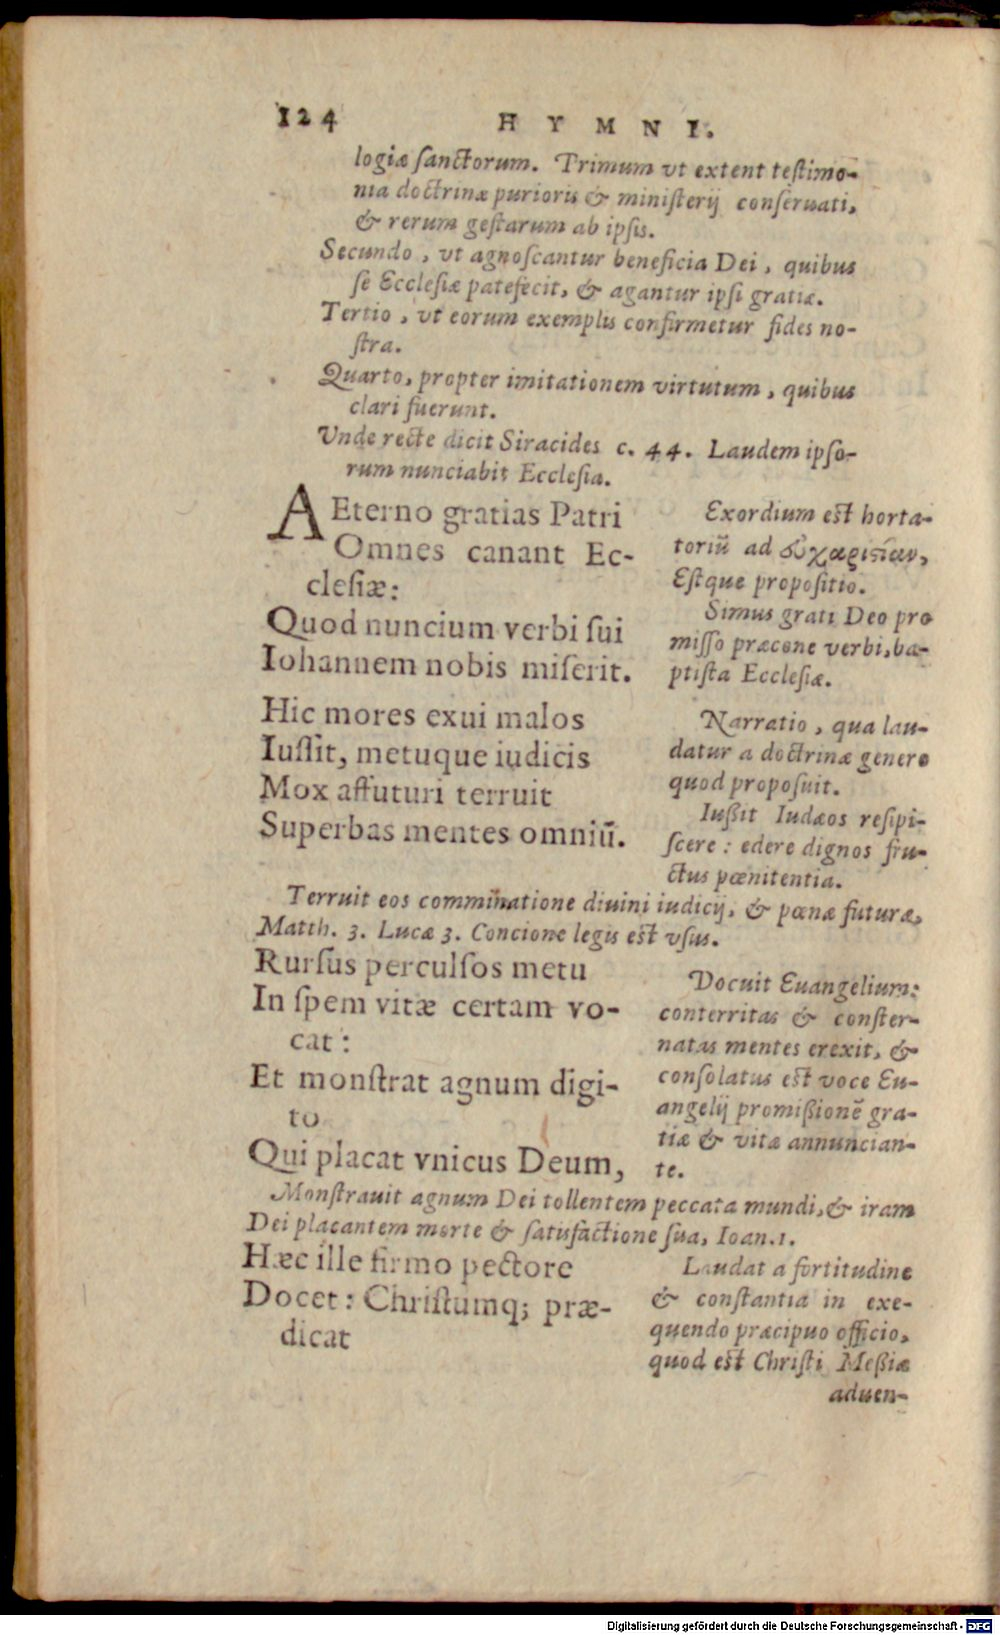 124 HYMNI.
logiæ sanctorum. Trimum vt extent testimo-
nia doctrinæ purioris & ministerij conseruati,
& rerum gestarum ab ipsis.
Secundo, vt agnoscantur beneficia Dei, quibus
se Ecclesiæ patefecit, & agantur ipsi gratiæ.
Tertio, vt eorum exemplis confirmetur fides no-
stra.
Quarto, propter imitationem virtutum, quibus
clari fuerunt.
Vnde recte dicit Siracides c. 44. Laudem ipso-
rum nunciabit Ecclesia.
AEterno gratias Patri
Omnes canant Ec-
clesiæ:
Quod nuncium verbi sui
Iohannem nobis miserit.
Exordium est horta-
toriū ad εὐχαριστίαν,
Estque propositio.
Simus grati Deo pro
misso præcone verbi, ba-
ptista Ecclesiæ.
Hic mores exui malos
Iussit, metuque iudicis
Mox affuturi terruit
Superbas mentes omniū.
Narratio, qua lau-
datur a doctrinæ genere
quod proposuit.
Iußit Iudæos resipi-
scere: edere dignos fru-
ctus pœnitentia.
Terruit eos comminatione diuini iudicij, & pœnæ futuræ,
Matth. 3. Lucæ 3. Concione legis est vsus.
Rursus perculsos metu
In spem vitæ certam vo-
cat:
Et monstrat agnum digi-
to
Qui placat vnicus Deum,
Docuit Euangelium:
conterritas & conster-
natas mentes erexit, &
consolatus est voce Eu-
angelij promißionē gra-
tiæ & vitæ annuncian-
te.
Monstrauit agnum Dei tollentem peccata mundi, & iram
Dei placantem morte & satisfactione sua, Ioan. 1.
Hæc ille firmo pectore
Docet: Christumq; præ-
dicat
Laudat a fortitudine
& constantia in exe-
quendo præcipuo officio,
quod est Christi Meßiæ
aduen-
Digitalisierung gefördert durch die Deutsche Forschungsgemeinschaft - DFG